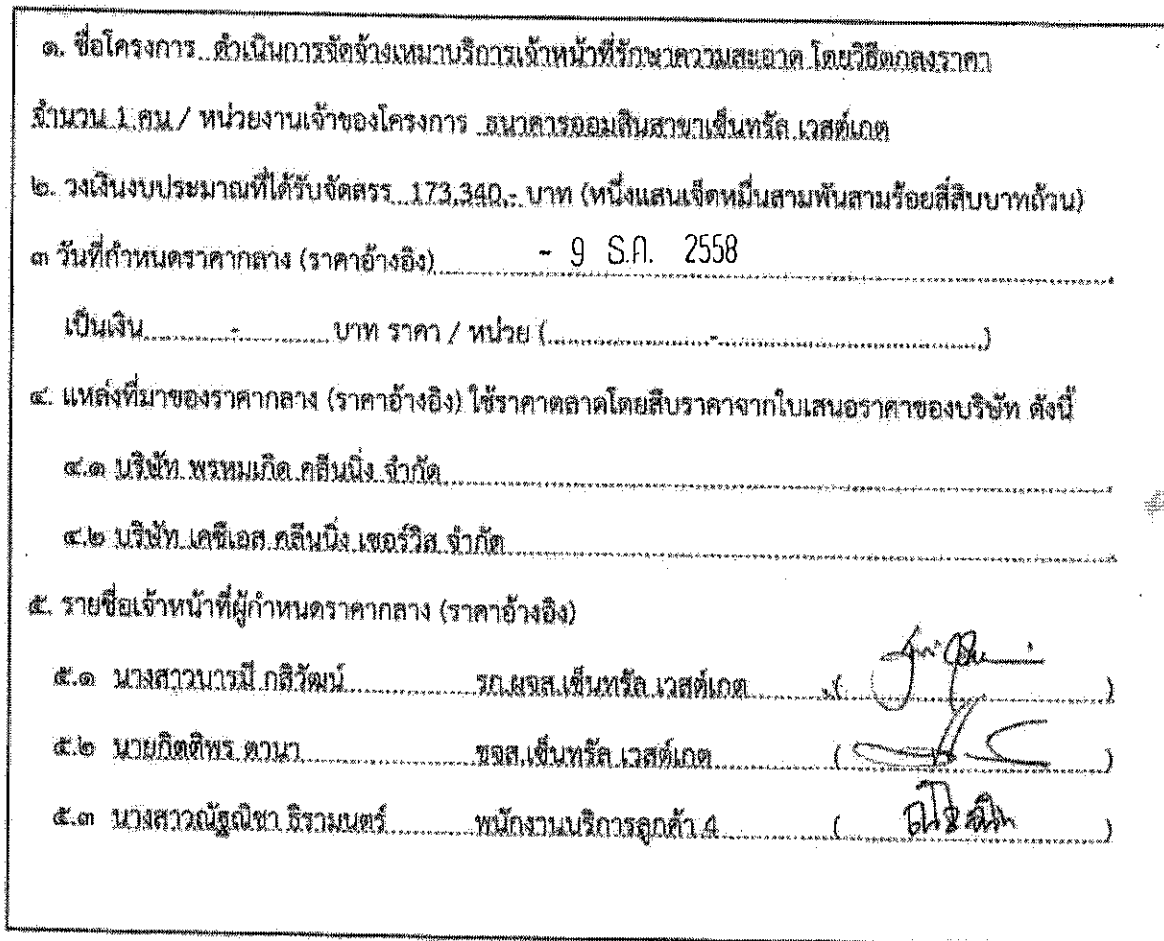 ๑. ชื่อโครงการ ดำเนินการจัดจ้างเหมาบริการเจ้าหน้าที่รักษาความสะอาด โดยวิธีตกลงราคา
จำนวน 1 คน / หน่วยงานเจ้าของโครงการ ธนาคารออมสินสาขาเซ็นทรัล เวสต์เกต
๒. วงเงินงบประมาณที่ได้รับจัดสรร 173,340.- บาท (หนึ่งแสนเจ็ดหมื่นสามพันสามร้อยสี่สิบบาทถ้วน)
๓ วันที่กำหนดราคากลาง (ราคาอ้างอิง) - 9 ธ.ค. 2558
เป็นเงิน - บาท ราคา / หน่วย ( - )
๔. แหล่งที่มาของราคากลาง (ราคาอ้างอิง) ใช้ราคาตลาดโดยสืบราคาจากใบเสนอราคาของบริษัท ดังนี้
๔.๑ บริษัท พรหมเกิด คลีนนิ่ง จำกัด
๔.๒ บริษัท เคซีเอส คลีนนิ่ง เซอร์วิส จำกัด
๕. รายชื่อเจ้าหน้าที่ผู้กำหนดราคากลาง (ราคาอ้างอิง)
๕.๑ นางสาวบารมี กสิวัฒน์ รก.ผจส.เซ็นทรัล เวสต์เกต ( )
๕.๒ นายกิตติพร ตานา ชจส.เซ็นทรัล เวสต์เกต ( )
๕.๓ นางสาวณัฐณิชา ธิรามนตร์ พนักงานบริการลูกค้า 4 ( )